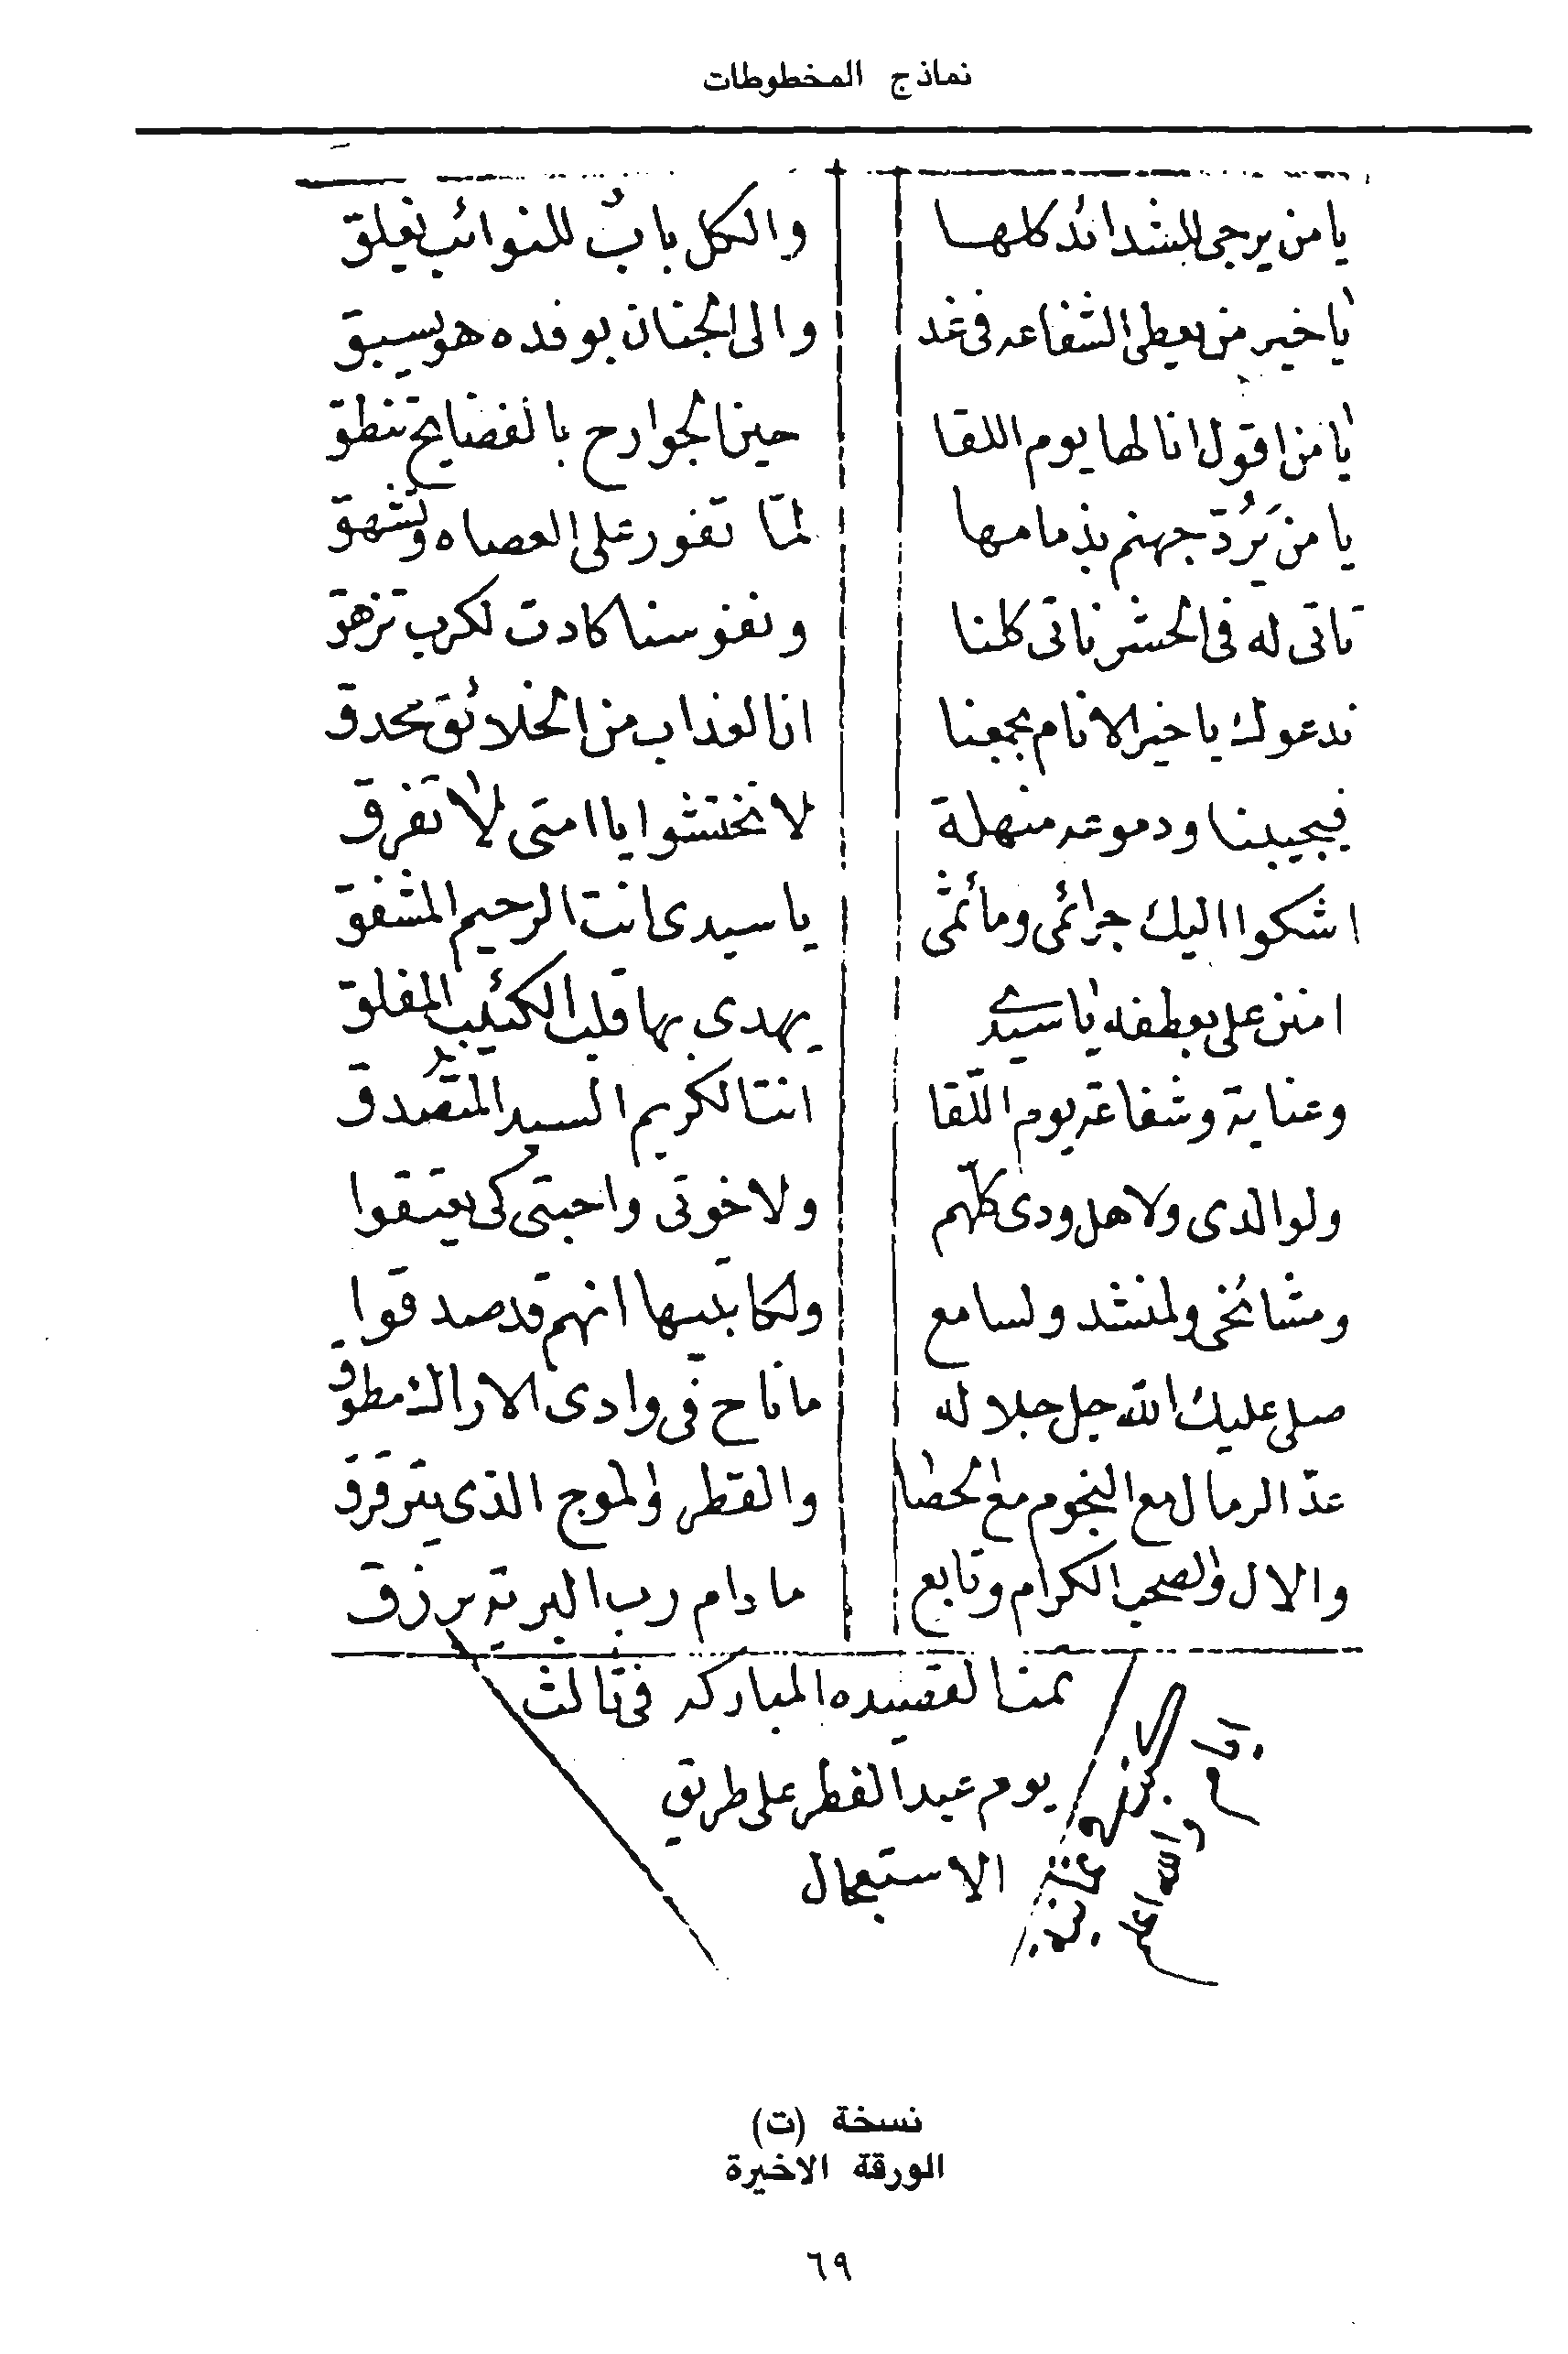 نماذج المخطوطات
يا من يرجى للشدائد كلها والكل باب للنوائب تغلق
يا خير من يعطى الشفاعه فى غد والى الجنان بوفده هو يسبق
يا من اقول انا لها يوم اللقا حين الجوارح بالفضايح تنطق
يا من يَرُدّ جهنم بذمامها لمّا تفور على العصاه وتشهق
تاتى له فى الحشر ناتى كلنا ونفوسنا كادت لكرب تزهق
ندعوك يا خير الانام بجمعنا انا العذاب من الخلائق محدق
فيجيبنا ودموعه منهلة لا تختشوا يا امتى لا تفرق
اشكوا اليك جرائمى ومأثمى يا سيدى انت الرحيم المشفق
امنن على بعطفه يا سيدى يهدى بها قلب الكئيب المقلق
وعناية وشفاعة يوم اللّقا انت الكريم السيد المتصدق
ولوالدى ولاهل ودى كلّهم ولاخوتى واحبتى كى يعتقوا
ومشائخى ولمنشد ولسامع ولكاتبيها انهم قد صدقوا
صلى عليك الله جل جلاله ما ناح فى وادى الاراك مطوق
عدّ الرمال مع النجوم مع الحصا والقطر والموج الذى يترقرق
والال والصحب الكرام وتابع ما دام رب البرية يرزق
تمت القصيده المباركه فى ثالث
يوم عيد الفطر على طريق
الاستعجال
والله اعلم
نسخة (ت)
الورقة الاخيرة
٦٩